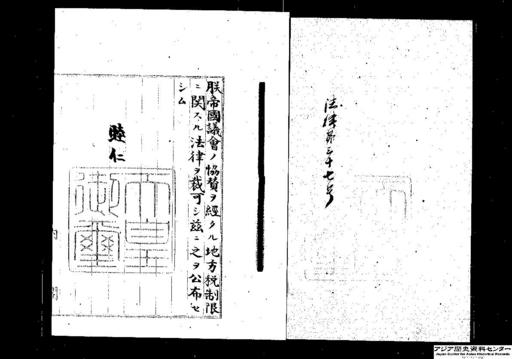 法律第三十七号
朕帝國議會ノ協賛ヲ經タル地方税制限
ニ関スル法律ヲ裁可シ茲ニ之ヲ公布セ
シム
睦仁
天皇
御璽
アジア歴史資料センター
Japan Center for Asian Historical Records